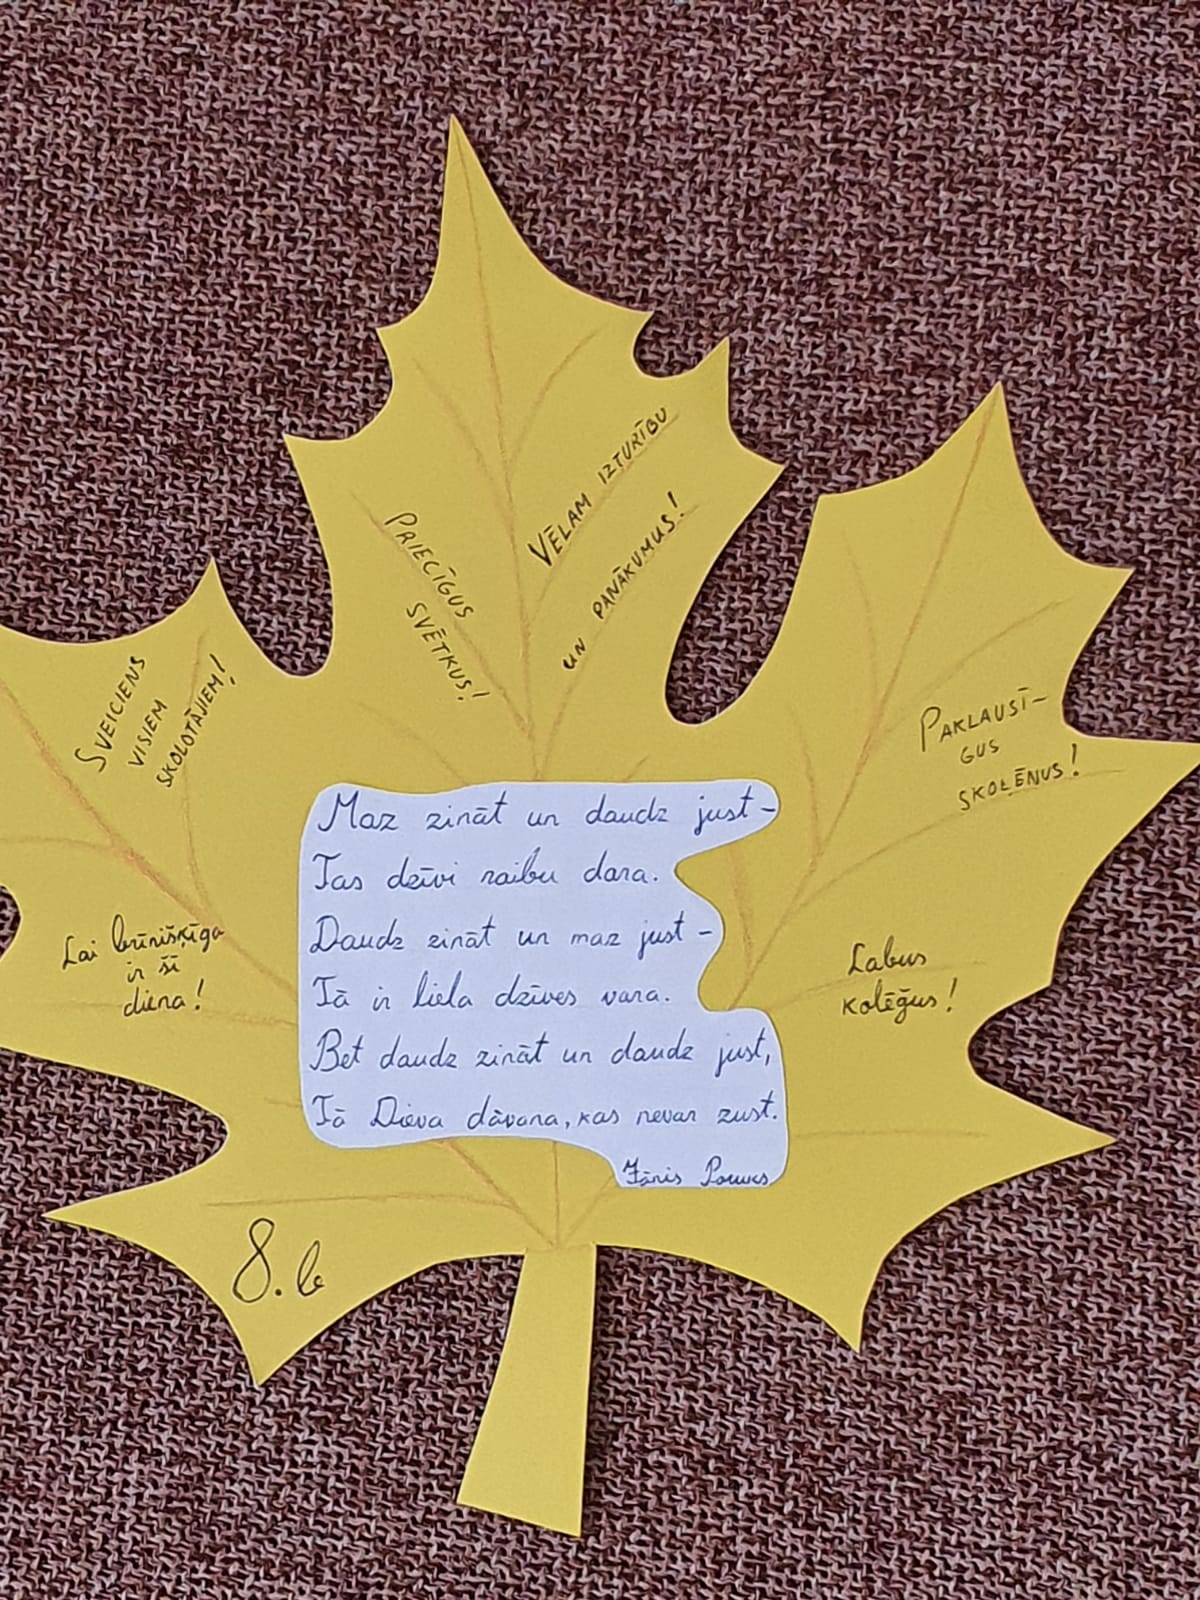 PRIECĪGUS
SVĒTKUS!
VĒLAM IZTURĪBU
UN PANĀKUMUS!
SVEICIENS
VISIEM
SKOLOTĀJIEM!
PAKLAUSĪ-
GUS
SKOLĒNUS!
Lai brīnišķīga
ir šī
diena!
Labus
kolēģus!
Maz zināt un daudz just-
Tas dzīvi raibu dara.
Daudz zināt un maz just-
Tā ir liela dzīves vara.
Bet daudz zināt un daudz just,
Tā Dieva dāvana, kas nevar zust.
Jānis Poruks
8.b